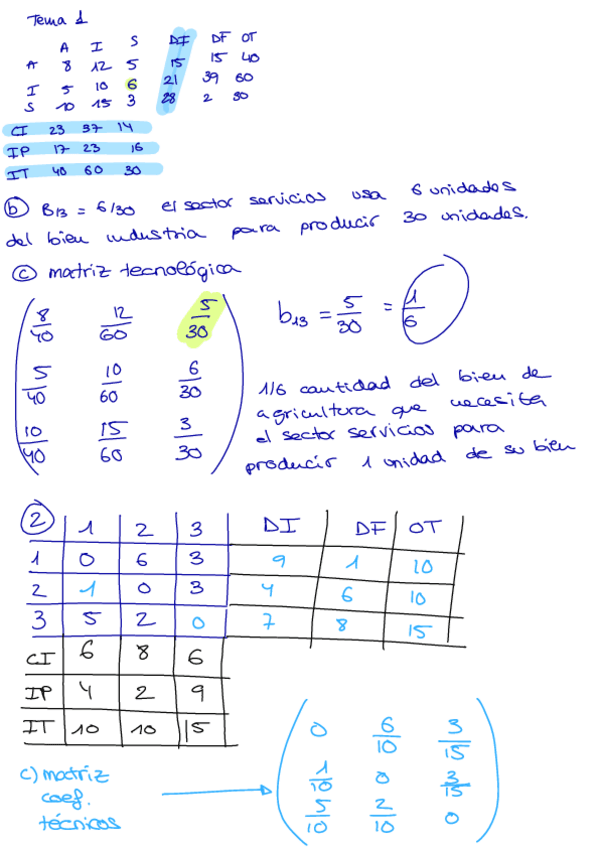 Tema 1
A I S DI DF OT
A 8 12 5 15 15 40
I 5 10 6 21 39 60
S 10 15 3 28 2 30
CI 23 37 14
IP 17 23 16
IT 40 60 30
b) B13 = 6/30 el sector servicios usa 6 unidades
del bien industria para producir 30 unidades.
c) matriz tecnológica
8/40 12/60 5/30 b13 = 5/30 = 1/6
5/40 10/60 6/30
10/40 15/60 3/30
1/6 cantidad del bien de
agricultura que necesita
el sector servicios para
producir 1 unidad de su bien
2 1 2 3 DI DF OT
1 0 6 3 9 1 10
2 1 0 3 4 6 10
3 5 2 0 7 8 15
CI 6 8 6
IP 4 2 9
IT 10 10 15
c) matriz
coef.
técnicos
0 6/10 3/15
1/10 0 3/15
5/10 2/10 0